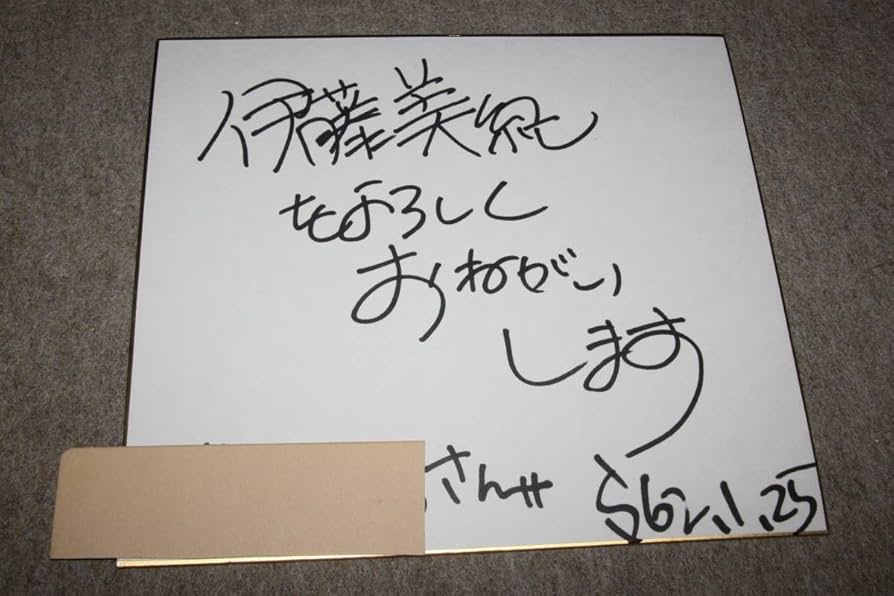 伊藤美紀
をよろしく
おねがい
します
さん江
S62.1.25